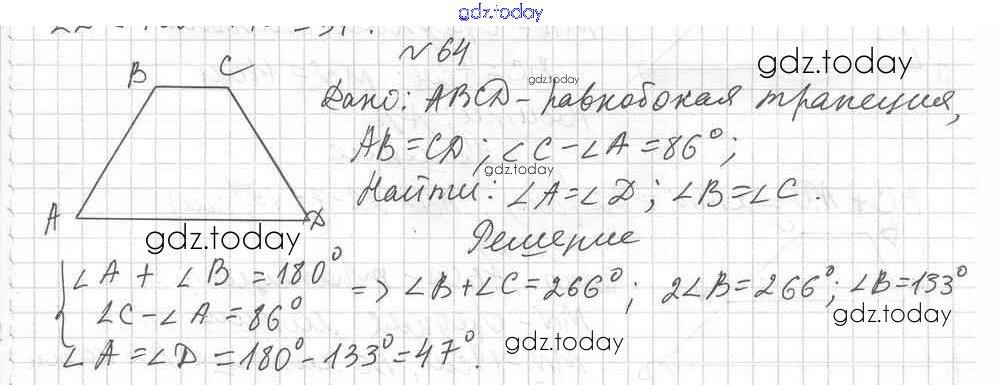 gdz.today
№ 64
gdz.today
B C
gdz.today
Дано: ABCD - равнобокая трапеция,
AB = CD; ∠C - ∠A = 86°;
gdz.today
Найти: ∠A = ∠D; ∠B = ∠C.
A D
gdz.today
Решение
∠A + ∠B = 180°
∠C - ∠A = 86°
=> ∠B + ∠C = 266°; 2∠B = 266°; ∠B = 133°
gdz.today
∠A = ∠D = 180° - 133° = 47°.
gdz.today